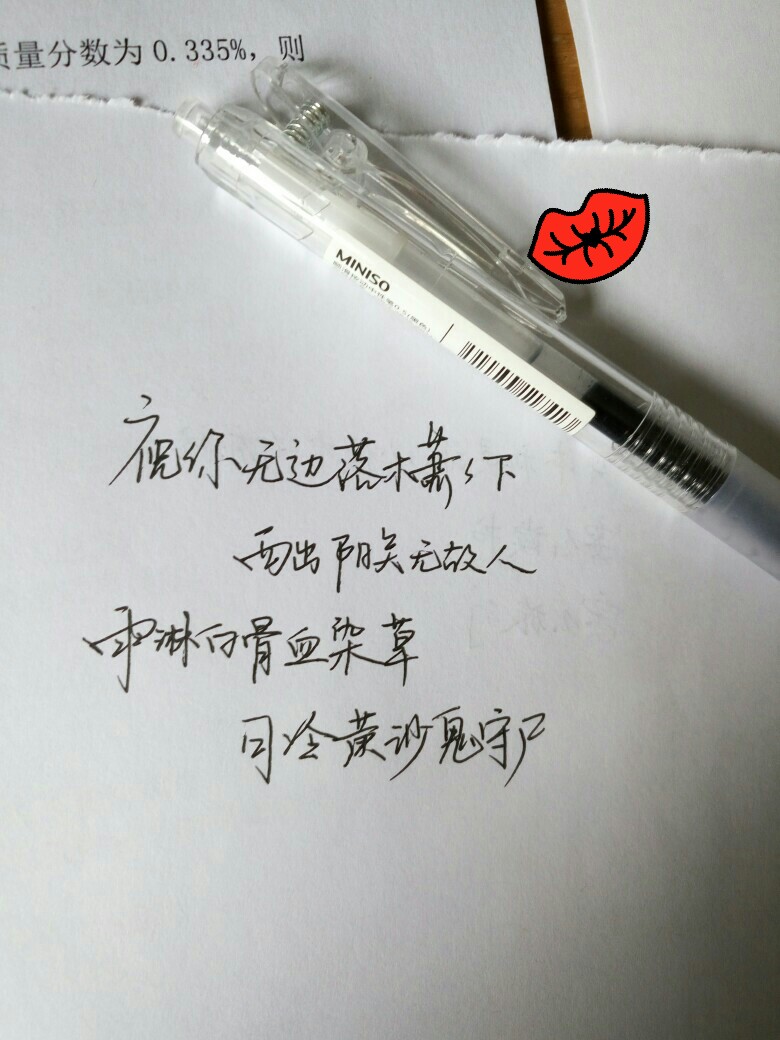 质量分数为0.335%，则
MINISO
祝你无边落木萧々下
西出阳关无故人
雨淋白骨血染草
月冷黄沙鬼守尸